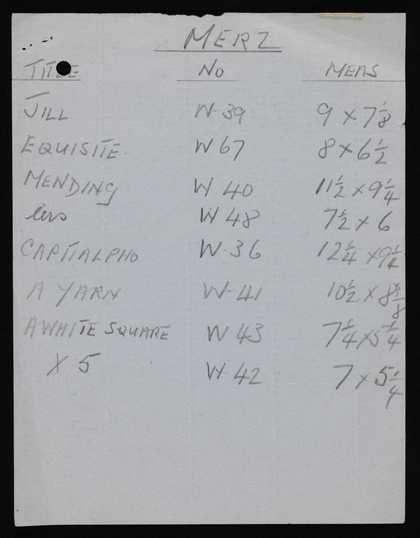 MERZ
TITLE No MEAS
JILL W 39 9 x 7 1/8
EQUISITE W 67 8 x 6 1/2
MENDING W 40 11 1/2 x 9 1/4
W 48 7 1/2 x 6
CAPITALPHO W 36 12 1/4 x 9 1/4
A YARN W 41 10 1/2 x
A WHITE SQUARE W 43 7 1/4 x 5 1/4
X 5 W 42 7 x 5 1/4